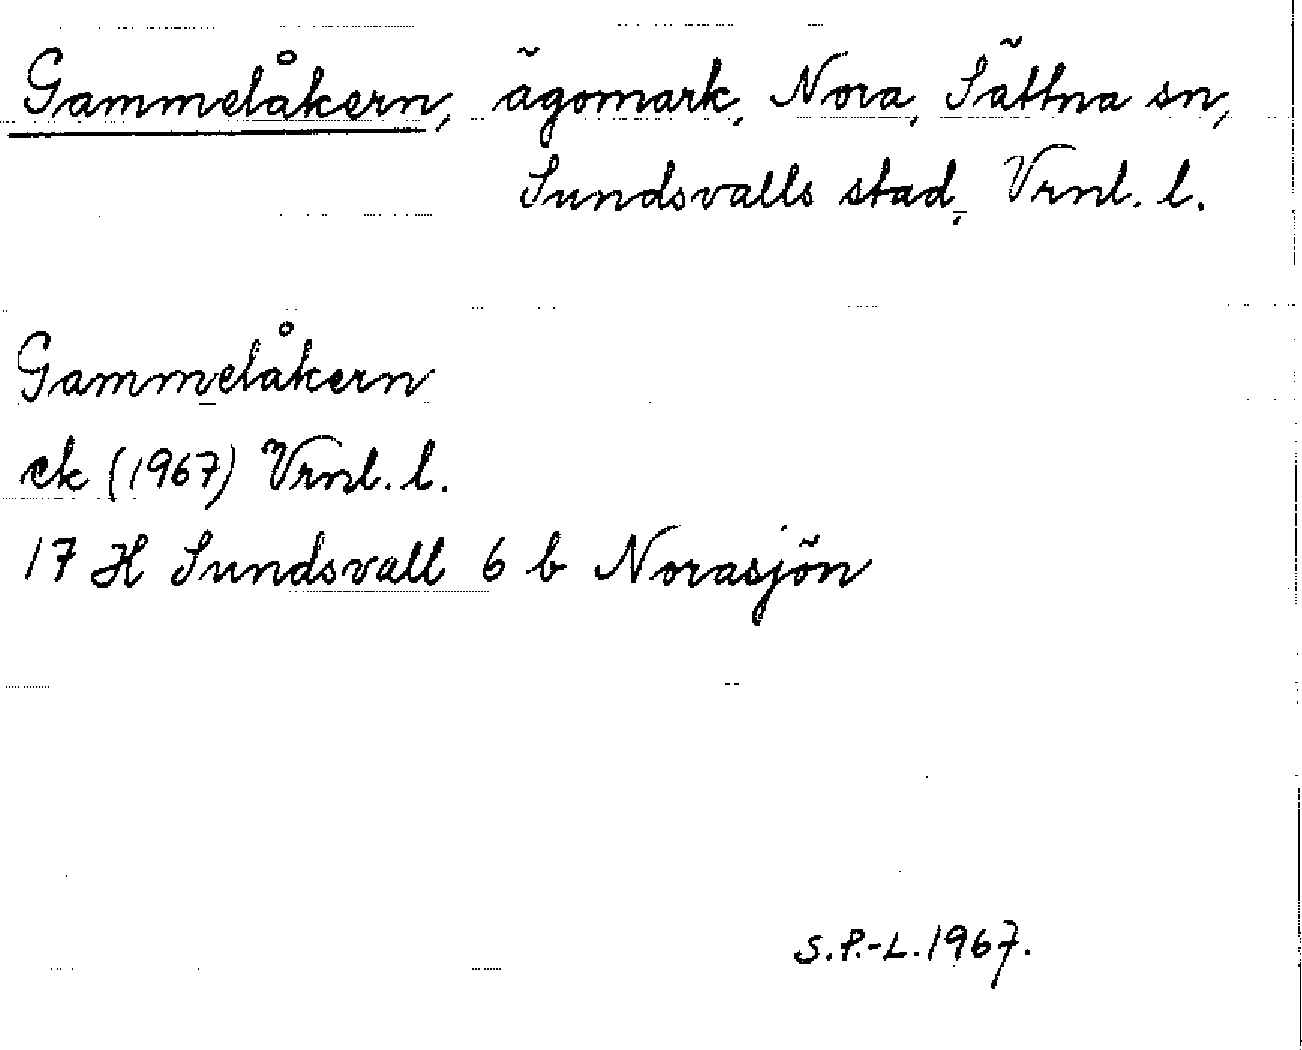 Gammelåkern, ägomark, Nora, Sättna sn,
Sundsvalls stad, Vrnl. l.
Gammelåkern
ek (1967) Vrnl. l.
17 H Sundsvall 6 b Norasjön
S.P.-L. 1967.